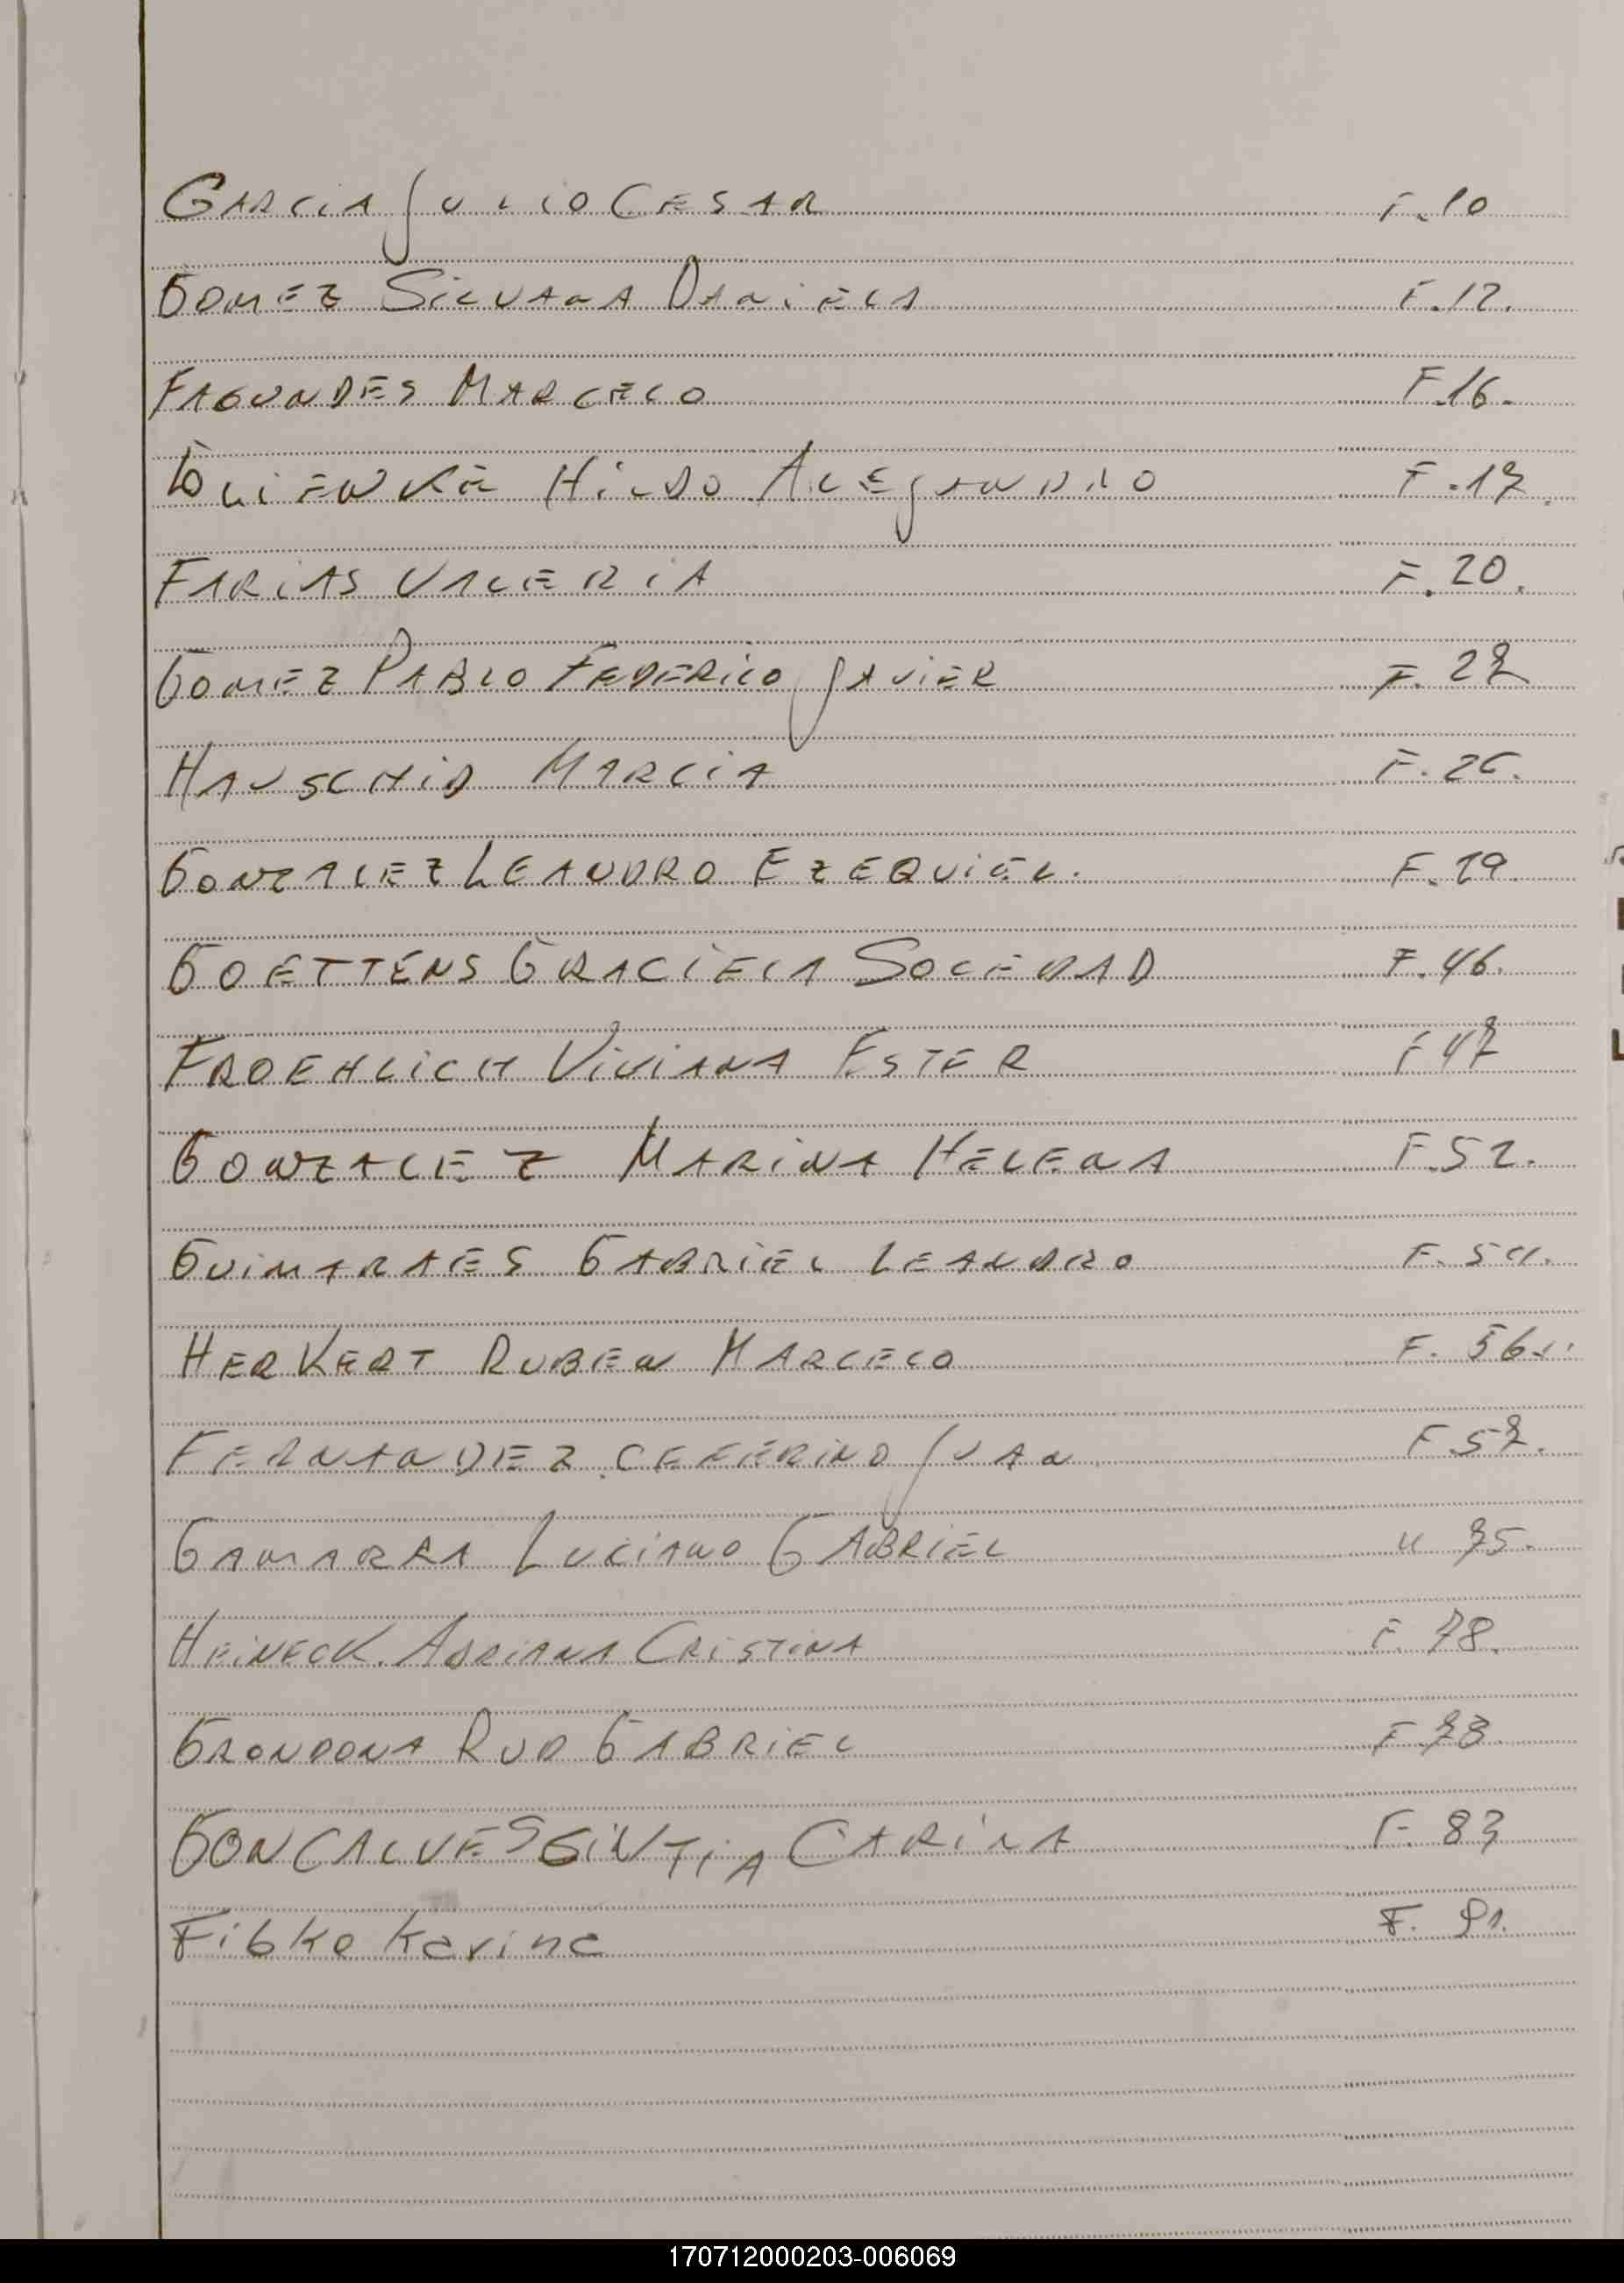 GARCIA JULIO CESAR F. 10
GOMEZ SILVANA DANIELA F. 12.
FAGUNDES MARCELO F. 16.
GLIENKE HILDO ALEJANDRO F. 17.
FARIAS VALERIA F. 20.
GOMEZ PABLO FEDERICO JAVIER F. 27
HAUSCHID MARCIA F. 26.
GONZALEZ LEANDRO EZEQUIEL. F. 19.
GOETTENS GRACIELA SOLEDAD F. 46.
FROEHLICH VIVIANA ESTER F 47
GONZALEZ MARINA HELENA F. 52.
GUIMARAES GABRIEL LEANDRO F. 54.
HERKERT RUBEN MARCELO F. 56
FERNANDEZ CEFERINO JUAN F. 57.
GAMARRA LUCIANO GABRIEL 75.
HEINECK ADRIANA CRISTINA F. 78.
GRONDONA GABRIEL F. 73
GONCALVES SINTIA CARINA F. 83
Fibko Karina F. 91.
170712000203-006069